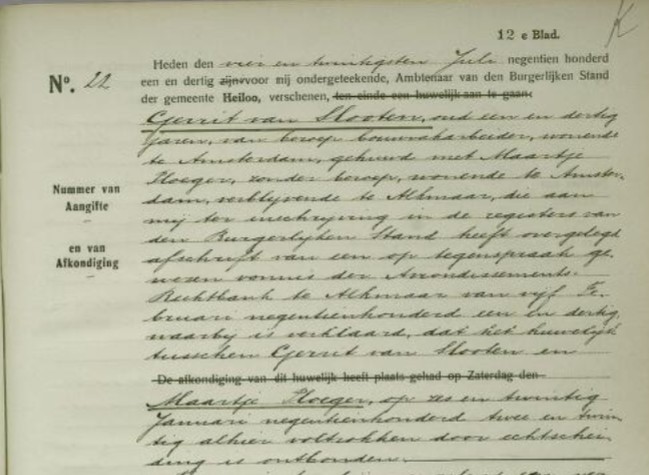 12 e Blad.
Heden den vier en twintigsten Juli negentien honderd
No. 22
een en dertig zijn voor mij ondergeteekende, Ambtenaar van den Burgerlijken Stand
der gemeente Heiloo, verschenen, ten einde een huwelijk aan te gaan:
Gerrit van Slooten, oud een en dertig
jaren, van beroep bouwvakarbeider, wonende
te Amsterdam, gehuwd met Maartje
Ploeger, zonder beroep, wonende te Amster-
dam, verblijvende te Alkmaar, die aan
Nummer van
Aangifte
mij ter inschrijving in de registers van
den Burgerlijken Stand heeft overgelegd
en van
Afkondiging
afschrift van een op tegenspraak ge-
wezen vonnis der Arrondissements-
Rechtbank te Alkmaar van vijf Fe-
bruari negentienhonderd een en dertig,
waarbij is verklaard, dat het huwelijk
tusschen Gerrit van Slooten en
De afkondiging van dit huwelijk heeft plaats gehad op Zaterdag den
Maartje Ploeger, op zes en twintig
Januari negentienhonderd twee en twin-
tig alhier voltrokken door echtschei-
ding is ontbonden.